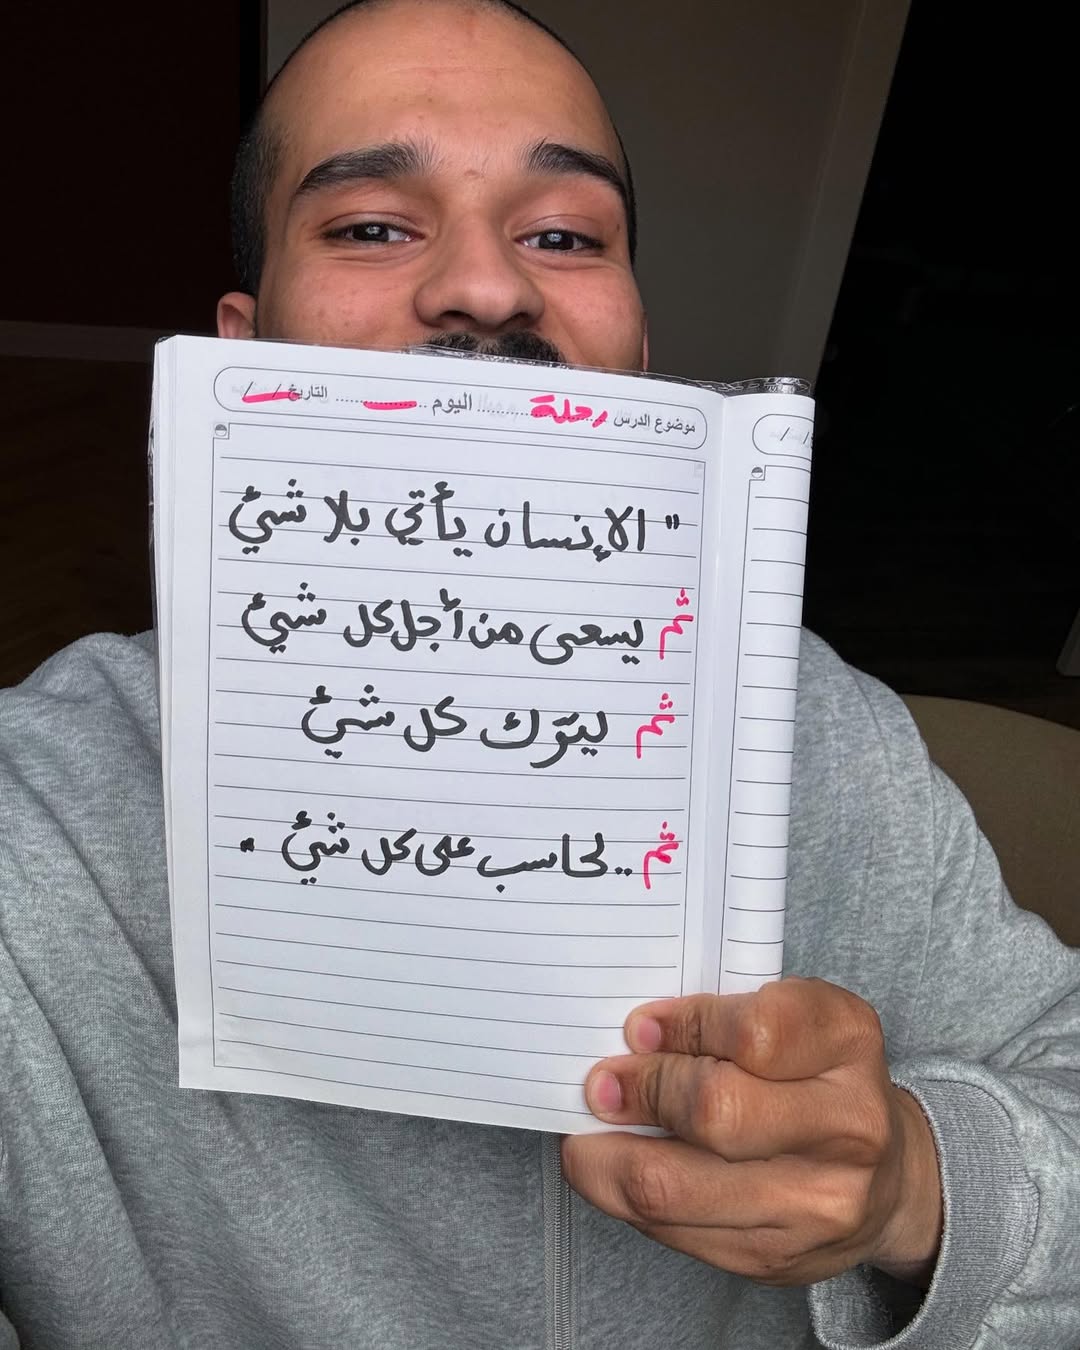 موضوع الدرس رحلة اليوم التاريخ / /
" الإنسان يأتي بلا شيئ
ثم يسعى من أجل كل شيئ
ثم ليترك كل شيئ
ثم .. لحاسب على كل شيئ "